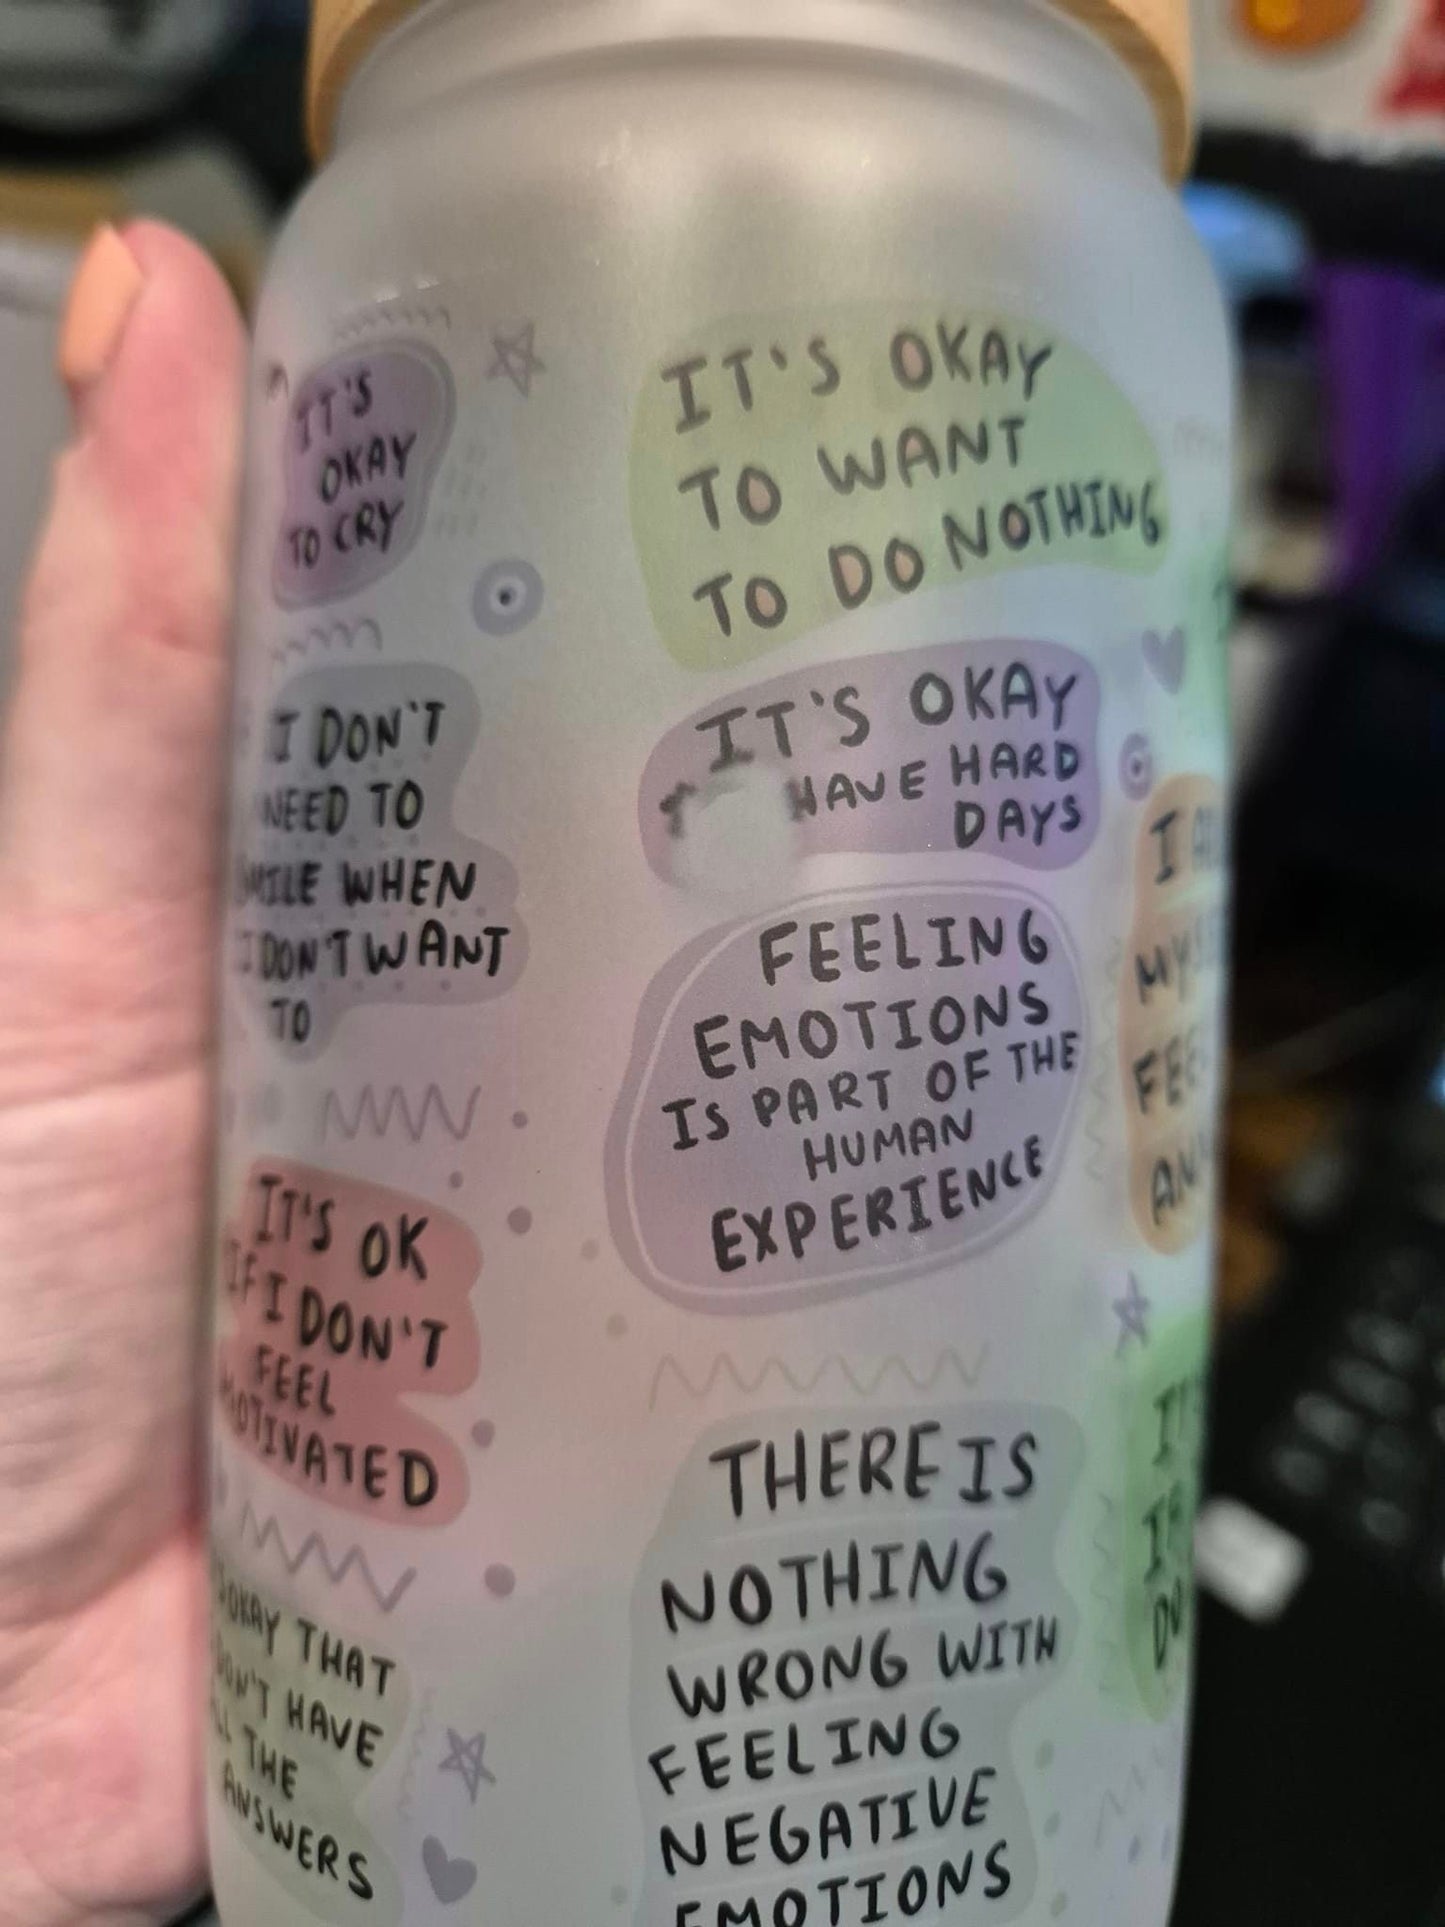 IT'S
OKAY
TO CRY
I DON'T
NEED TO
SMILE WHEN
I DON'T WANT
TO
IT'S OK
IF I DON'T
FEEL
MOTIVATED
OKAY THAT
DON'T HAVE
THE
ANSWERS
IT'S OKAY
TO WANT
TO DO NOTHING
IT'S OKAY
HAVE HARD
DAYS
FEELING
EMOTIONS
IS PART OF THE
HUMAN
EXPERIENCE
THERE IS
NOTHING
WRONG WITH
FEELING
NEGATIVE
EMOTIONS
I